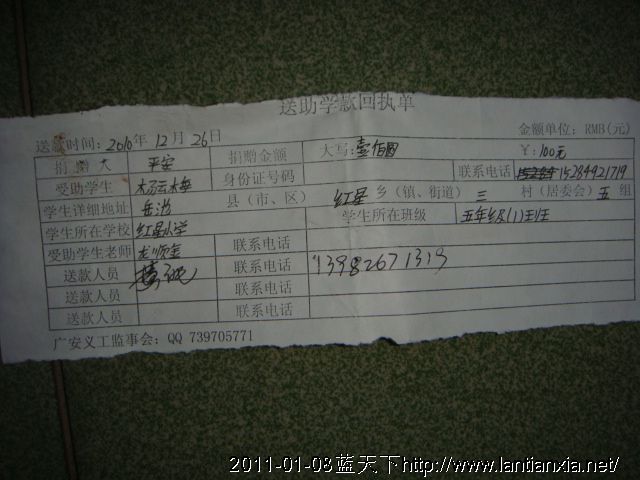 送助学款回执单
送款时间: 2010年 12月 26日 金额单位: RMB(元)
捐赠人 平安 捐赠金额 大写: 壹佰圆 ¥: 100元
受助学生 杨云梅 身份证号码 联系电话 15284921719
学生详细地址 岳池 县(市、区) 红星 乡(镇、街道) 三 村(居委会) 五 组
学生所在学校 红星小学 学生所在班级 五年级(1)班
受助学生老师 龙顺金 联系电话 13982671319
送款人员 联系电话
送款人员 联系电话
送款人员
广安义工监事会: QQ 739705771
2011-01-08蓝天下http://www.lantianxia.net/